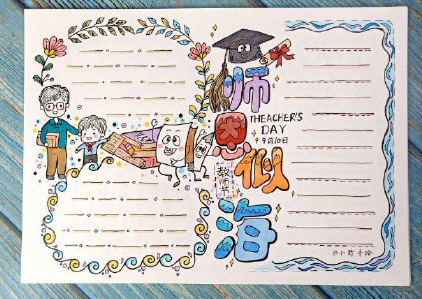 师恩似海
THEACHER'S
DAY
9月10日
教师
@小鹿手绘